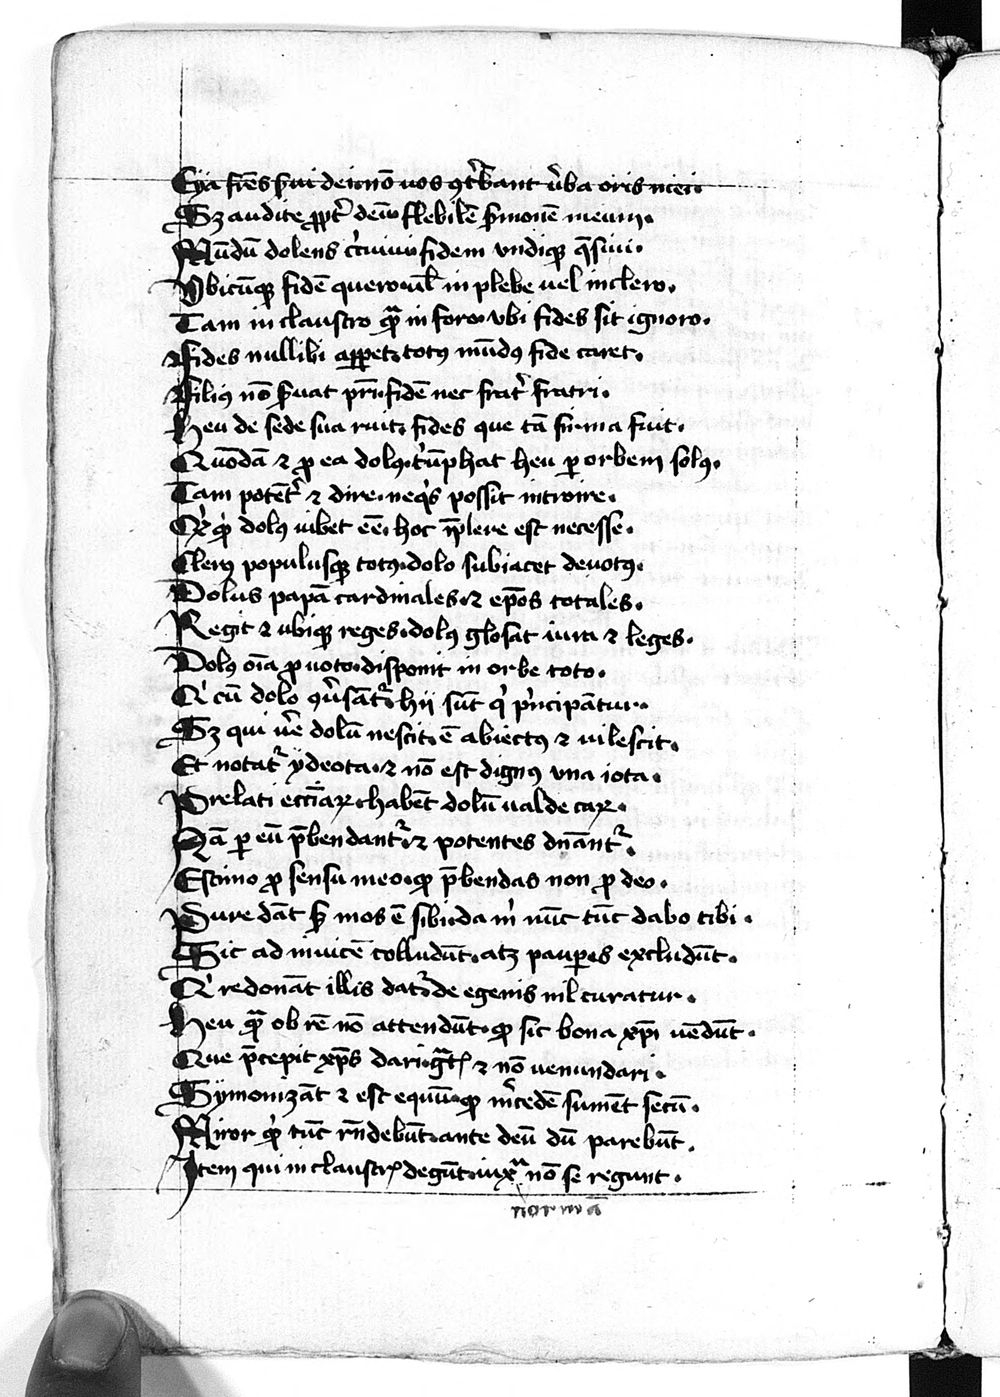 Eya fr̄es s̄ui dei nō uos ꝯt͛bant v̄ba oris mei.
Sꝫ audite ꝓpt͛ deū flebilē s̄monē meum.
Mūdū dolens c͛cuiui fidem vndiqꝫ q̄siui.
Vbicūqꝫ fidē quero ul̄ in plebe uel in clero.
Tam in claustro qᷓ in foro vbi fides sit ignoro.
Fides nullibi apꝑet totꝰ mūdꝰ fide caret.
Filiꝰ nō s̄uat pr̄i fidē nec frat͛ fratri.
Heu de sede sua ruit fides que tā firma fuit.
Quōdā ⁊ ꝓ ea dolꝰ t͛ūphat heu ꝑ orbem solꝰ.
Tam potēt͛ ⁊ dire neqͥs possit introire.
dolꝰ iubet eē hoc īplere est necesse.
Clerꝰ populusqꝫ totꝰ dolo subiacet deuotꝰ.
Dolus papā cardinales ⁊ ep̄os totales.
Regit ⁊ ubiqꝫ reges dolꝰ glosat iura ⁊ leges.
Dolꝰ oīa ꝓ uoto disponit in orbe toto.
Qͥ cū dolo ꝯv̄sāt᷑ hij sūt qͥ pͥncipātur.
Sꝫ qui u͛e dolū nescit ē abiectꝰ ⁊ uilescit.
Et notat᷑ ydeota ⁊ nō est dignꝰ vna iota.
Prelati eccīaꝝ habēt dolū ualde caꝝ.
Nā ꝑ eū p̄bendant᷑ ⁊ potentes dn̄ant᷑.
Estimo ꝓ sensu meo ꝙ p̄bendas non ꝓ deo.
Pure dāt s̄ mos ē sibi da mͥ nūc tūc dabo tibi.
Sic ad inuicē colludūt atqꝫ pauꝑes excludūt.
Qͥ redonāt illis dat᷑ de egenis nil curatur.
Heu qᷓ ob rē nō attendūt ꝙ sic bona xp̄i uēdūt.
Que p̄cepit xp̄s dari gᷓtꝭ ⁊ nō uenundari.
Symonizāt ⁊ est equū ꝙ m͛cedē sumēt secū.
Miror qͥ tūc rn̄debūt ante deū dū parebūt.
Item qui in claustrꝭ degūt iuxᷓ nō se regunt.
normā